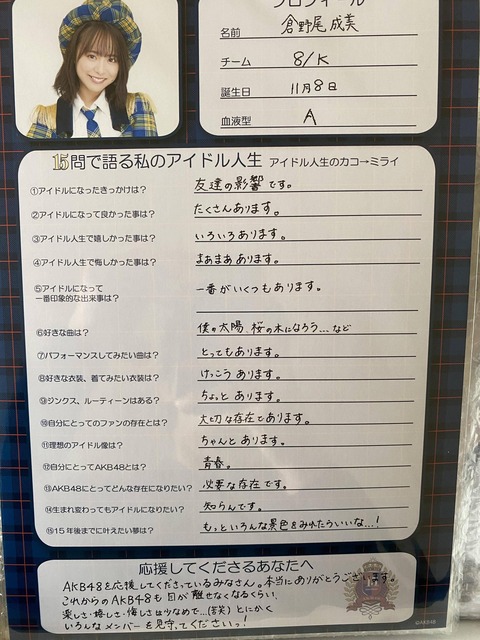 プロフィール
名前 倉野尾 成美
チーム 8/K
誕生日 11月8日
血液型 A
15問で語る私のアイドル人生 アイドル人生のカコ→ミライ
①アイドルになったきっかけは? 友達の影響です。
②アイドルになって良かった事は? たくさんあります。
③アイドル人生で嬉しかった事は? いろいろあります。
④アイドル人生で悔しかった事は? まあまああります。
⑤アイドルになって
一番印象的な出来事は? 一番がいくつもあります。
⑥好きな曲は? 僕の太陽、桜の木になろう…など
⑦パフォーマンスしてみたい曲は? とってもあります。
⑧好きな衣装、着てみたい衣装は? けっこうあります。
⑨ジンクス、ルーティーンはある? ちょっとあります。
⑩自分にとってのファンの存在とは? 大切な存在であります。
⑪理想のアイドル像は? ちゃんとあります。
⑫自分にとってAKB48とは? 青春。
⑬AKB48にとってどんな存在になりたい? 必要な存在です。
⑭生まれ変わってもアイドルになりたい? 知らんです。
⑮15年後までに叶えたい夢は? もっといろんな景色をみれたらいいな…!
応援してくださるあなたへ
AKB48を応援してくださっているみなさん。本当にありがとうございます。
これからのAKB48も目が離せなくなるくらい、
楽しさ・嬉しさ・悔しさは少なめで…(苦笑)とにかく
いろんなメンバーを見守ってくださいっ!
©AKB48